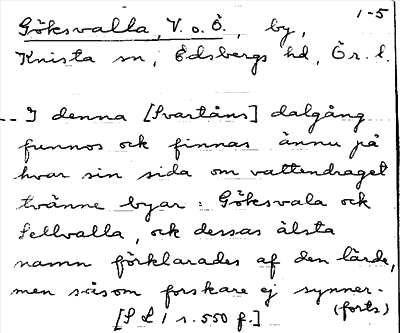 1-5
Göksvalla, V. o. Ö., by,
Knista sn, Edsbergs hd, Ör. l.
-- I denna [Svartåns] dalgång
funnos och finnas ännu på
hvar sin sida om vattendraget
tvänne byar: Göksvala och
Sellvalla, och dessas älsta
namn förklarades af den lärde,
men såsom forskare ej synner-
(forts)
[S L 1 s. 550 f.]